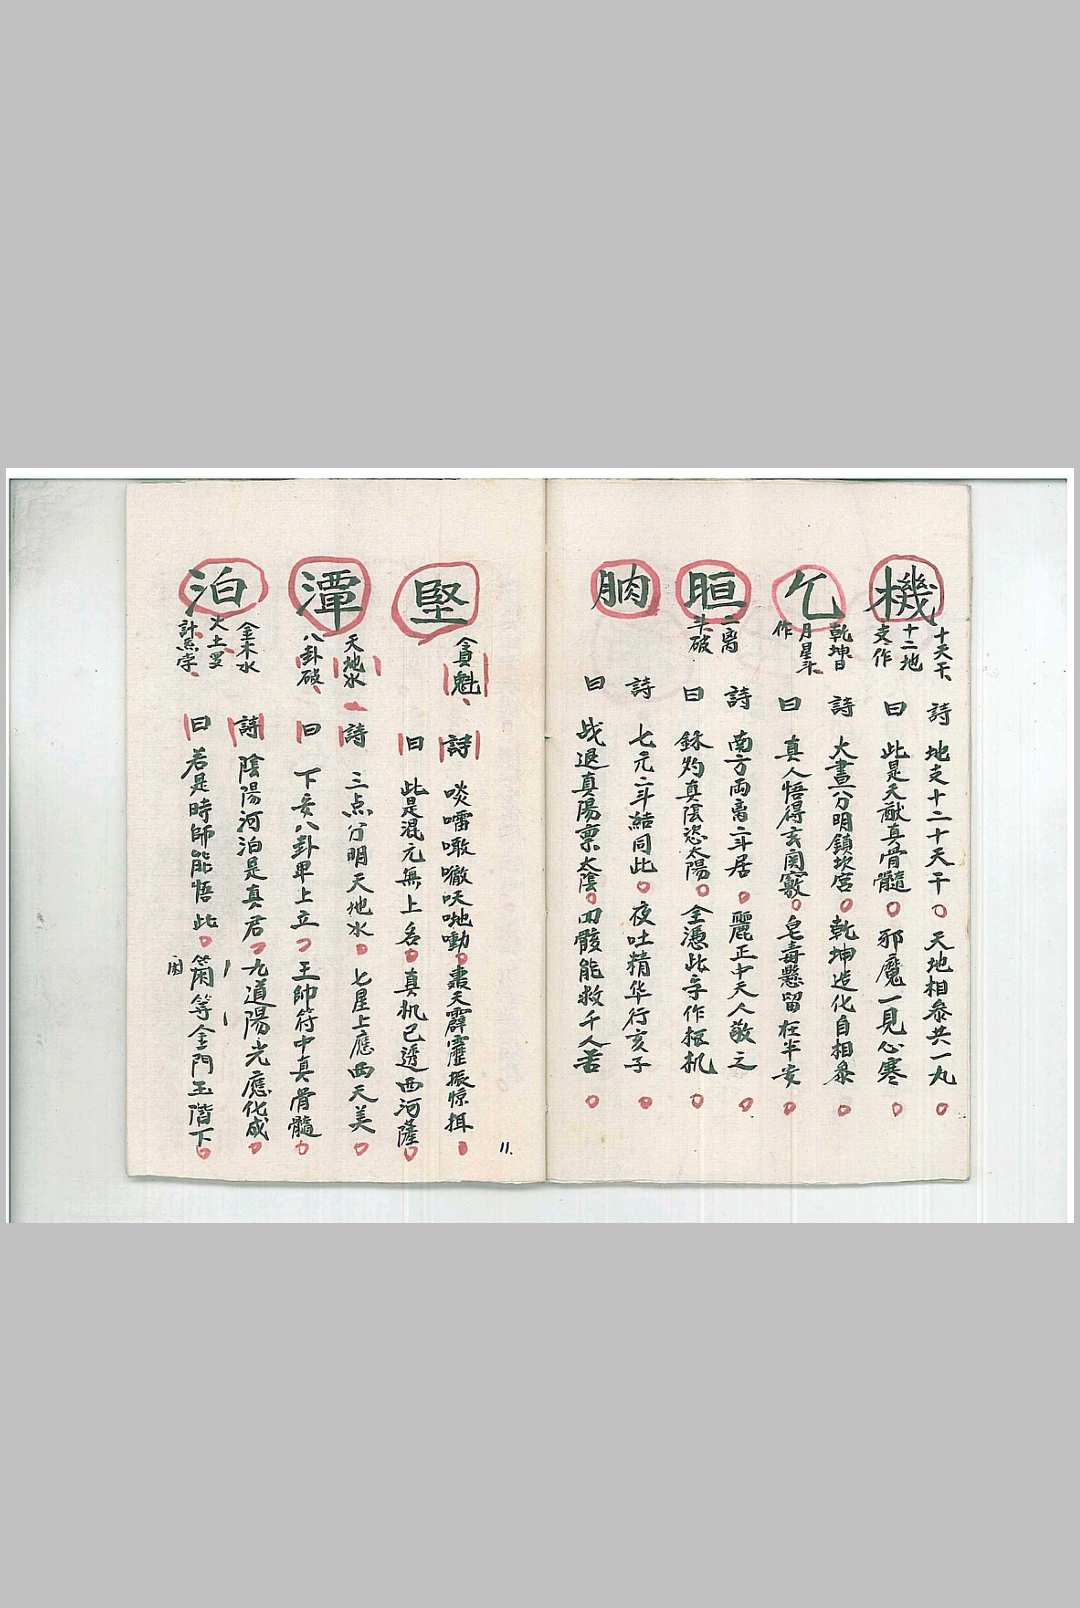 機
十天干、
十二地
支作
詩 地支十二十天干 天地相叅共一丸
曰 此是天猷真骨髓 邪魔一見心寒
乞
乾坤日
月星斗、
作
詩 大畫分明鎮坎宮 乾坤造化自相叅
曰 真人悟得玄関竅 皂毒懸留在半安
晅
二离
斗破
詩 南方両离二斗居 麗正中天人敬之
曰 銖灼真陰恣太陽 全憑此字作抠机
腩
詩 七元二斗結同此 夜吐精华行亥子
曰 战退真陽禀太陰 四骸能救千人苦
堅
貪魁、
詩 啖嚅噉嘞呋哋嘞 書天霹靂振惊挕
曰 此是混元無上名 真机已透西河薩
潭
天地水
八卦破、
詩 三点分明天地水 七星上應西天美
曰 下安八卦单上立 王帥符中真骨髓
泊
金木水
火土罗、
計炁孛、
詩 陰陽河泊是真君 九道陽光應化成
曰 若是時師能悟此 蘭等金門玉階下
11.